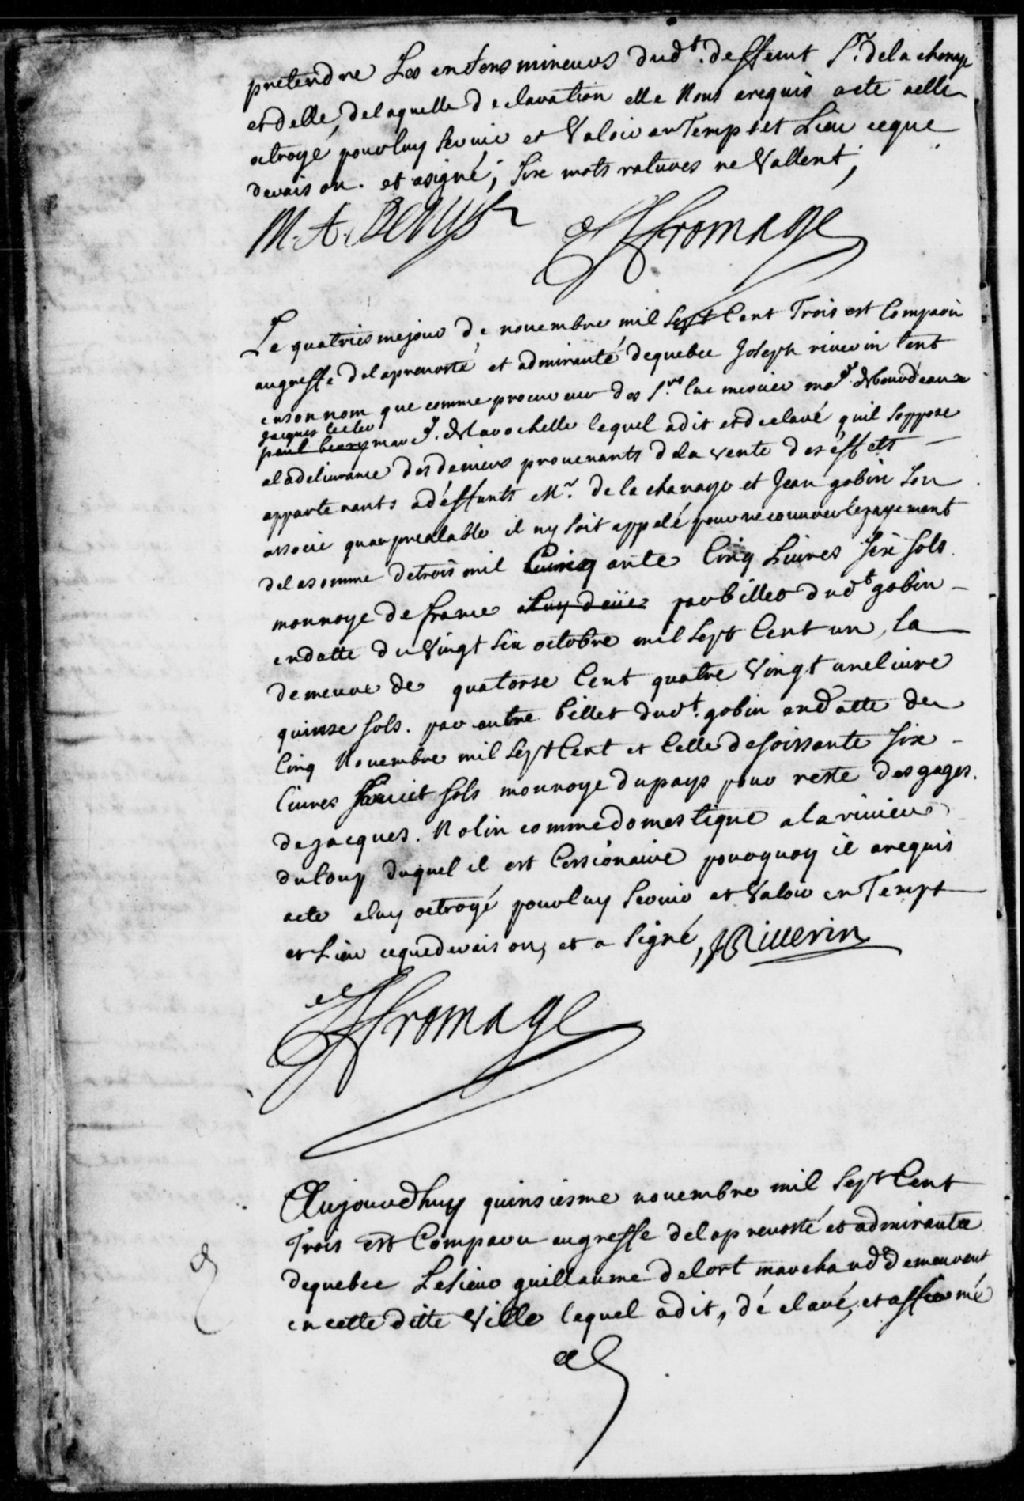 pretendre Les enfens mineurs dud.t deffunt S.r de la chenaye
et d'elle, de laquelle declaration elle Nous a requis acte a elle
octroyé pour luy servir et Valoir en Temps et Lieu ce que
de raison. et a signé; six mots ratures ne Vallent;
M. A. Denys
Fromage
Le quatriesme jour de novembre mil sept Cent Trois est Comparu
au greffe de la prevosté et admirauté de quebec Joseph riverin tent
en son nom que comme procureur des S.rs luc mercier ma.d de bourdeaux
jacques leclerc
paul march.d de la rochelle lequel a dit et declaré quil s'oppose
a la delivrance des deniers provenants de la vente des effets
appartenants a deffunts M.r de la chenaye et Jean gobin son
associé quau prealable il ny soit appelé pour recouvrer le payement
de la somme de trois mil Cinquante Cinq Livres six sols
monnoye de france a luy deüe par billet dud.t gobin
en datte du Vingt six octobre mil sept Cent un, la
demeure de quatorse Cent quatre Vingt une livre
quinse sols. par autre billet dud.t gobin en datte du
Cinq Novembre mil sept Cent et Celle de soissante six
livres huict sols monnoye du pays pour reste des gages
de jacques. Nolin comme domestique a la riviere
du Loup duquel il est Cessionaire pourquoy il a requis
acte a luy octroyé pour luy servir et Valoir en Temps
et Lieu ce que de raison, et a signé, JRiverin
Fromage
Aujourdhuy quinsiesme novembre mil sept Cent
Trois est Comparu au greffe de la prevosté et admirauté
de quebec Le sieur guillaume delort marchand demeurent
en cette ditte Ville lequel a dit, déclaré, et affirmé